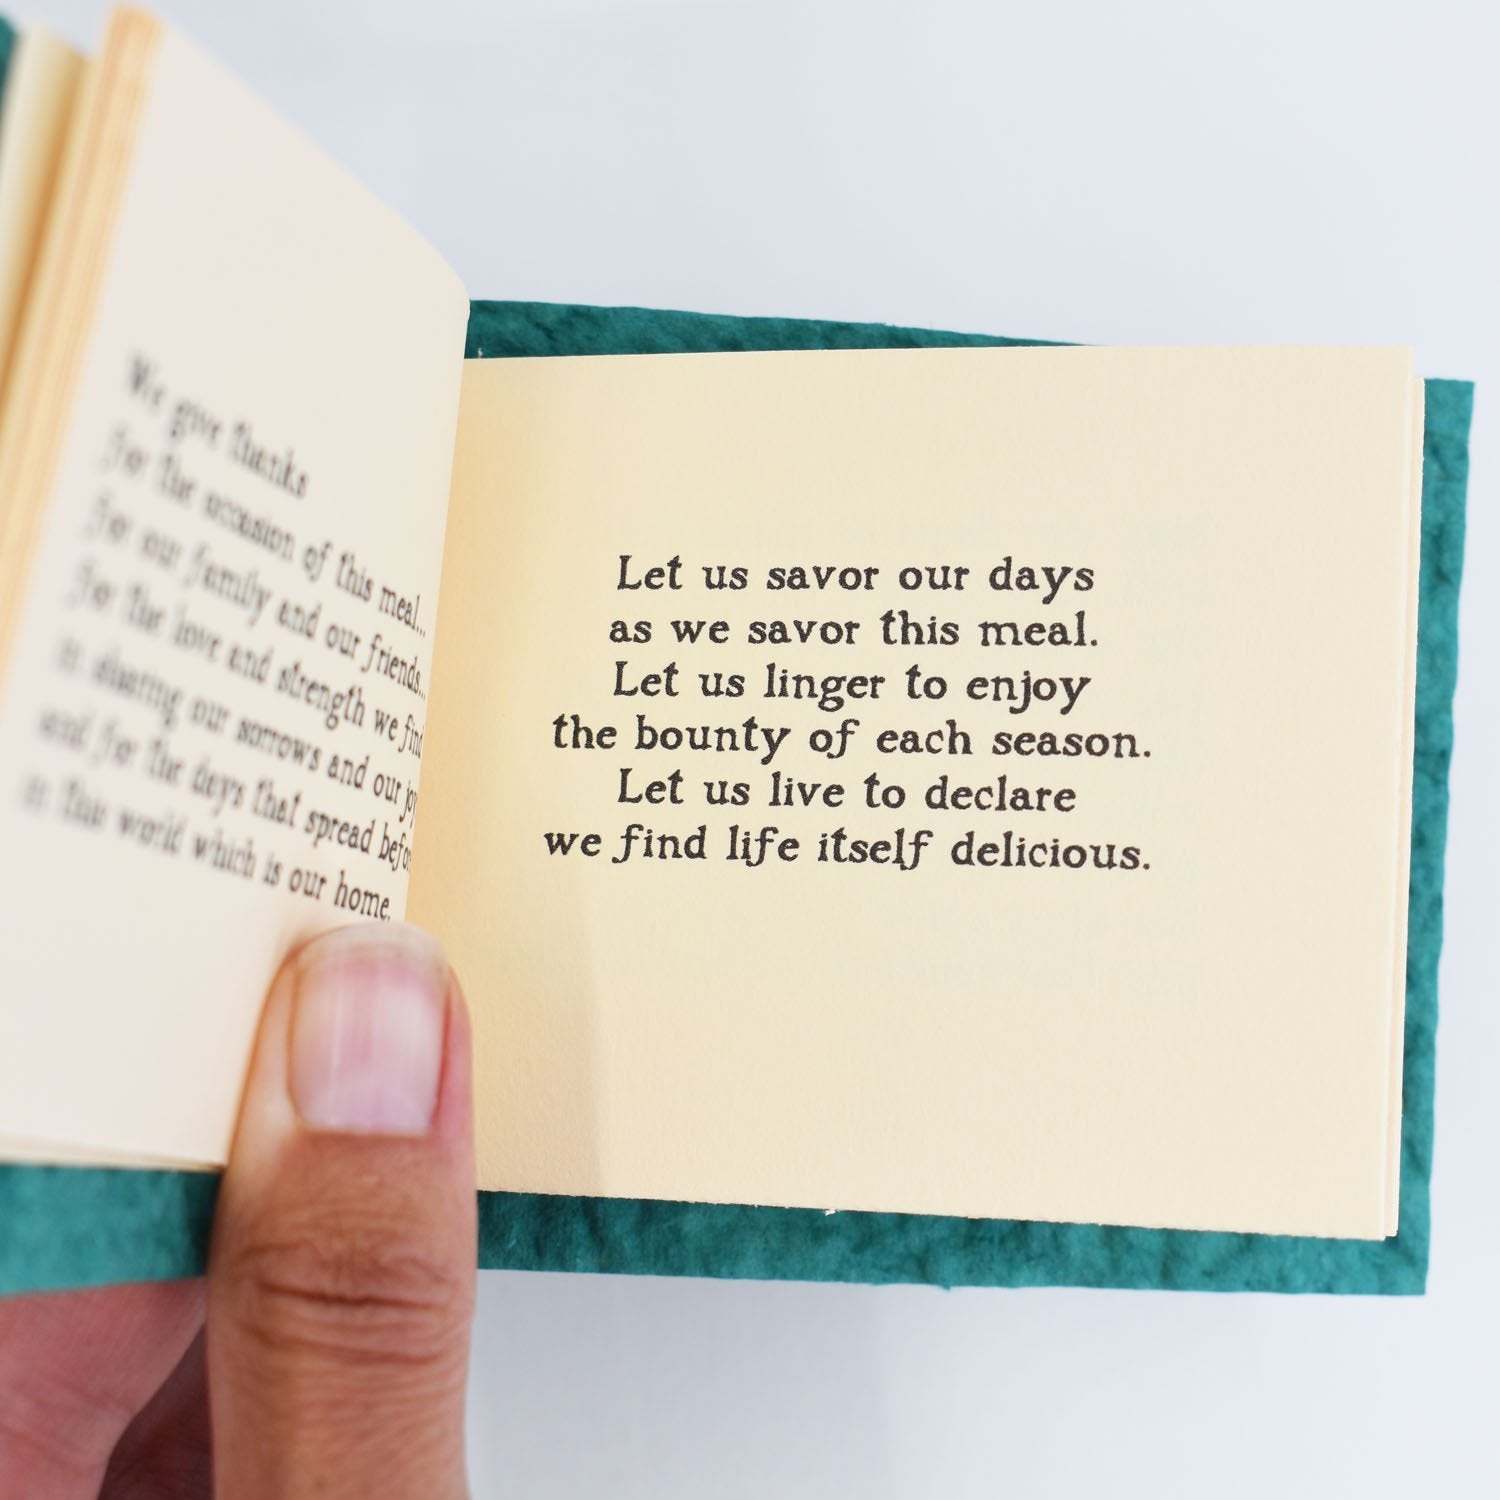 We give thanks
for the occasion of this meal...
for our family and our friends...
for the love and strength we find
in sharing our sorrows and our joy
and for the days that spread befo
in this world which is our home.
Let us savor our days
as we savor this meal.
Let us linger to enjoy
the bounty of each season.
Let us live to declare
we find life itself delicious.